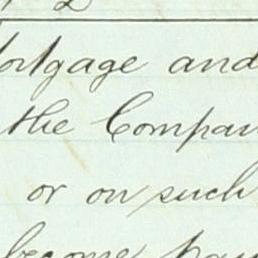 ortgage and
the Compan
or on such
become pay